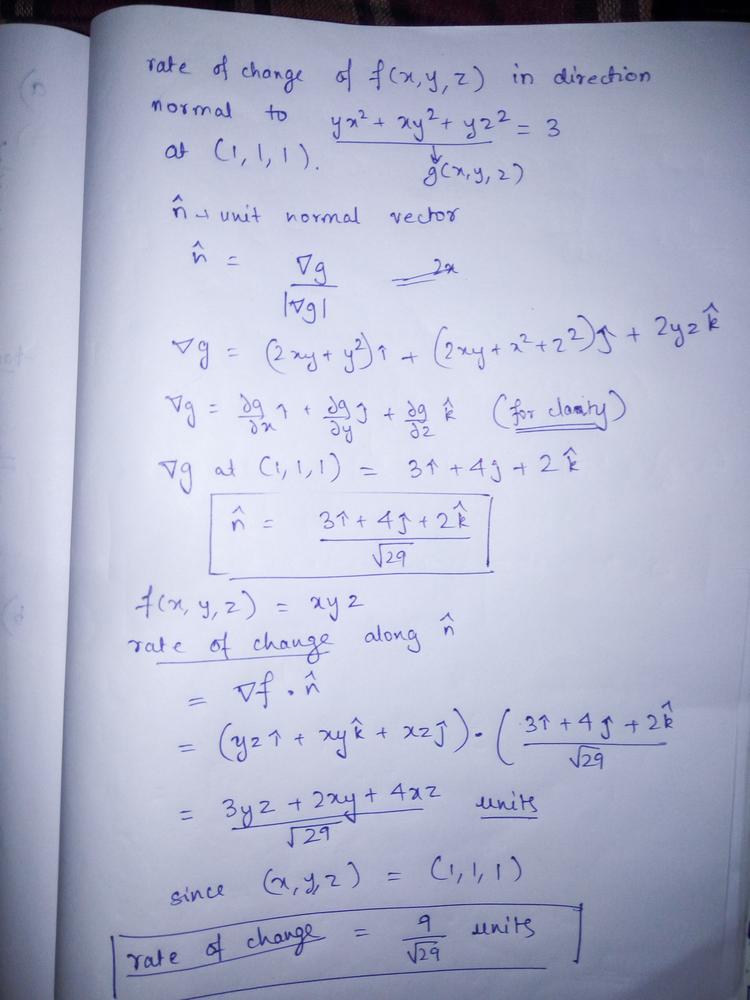 rate of change of f(x,y,z) in direction
normal to yx² + xy² + yz² = 3
at (1,1,1). ↓ g(x,y,z)
n̂ → unit normal vector
n̂ = ∇g / |∇g| 2x
∇g = (2xy + y²)î + (2xy + x² + z²)ĵ + 2yz k̂
∇g = ∂g/∂x î + ∂g/∂y ĵ + ∂g/∂z k̂ (for clarity)
∇g at (1,1,1) = 3î + 4ĵ + 2k̂
n̂ = (3î + 4ĵ + 2k̂)/√29
f(x,y,z) = xyz
rate of change along n̂
= ∇f · n̂
= (yz î + xy k̂ + xz ĵ) · (3î + 4ĵ + 2k̂ / √29
= (3yz + 2xy + 4xz)/√29 units
since (x,y,z) = (1,1,1)
rate of change = 9/√29 units